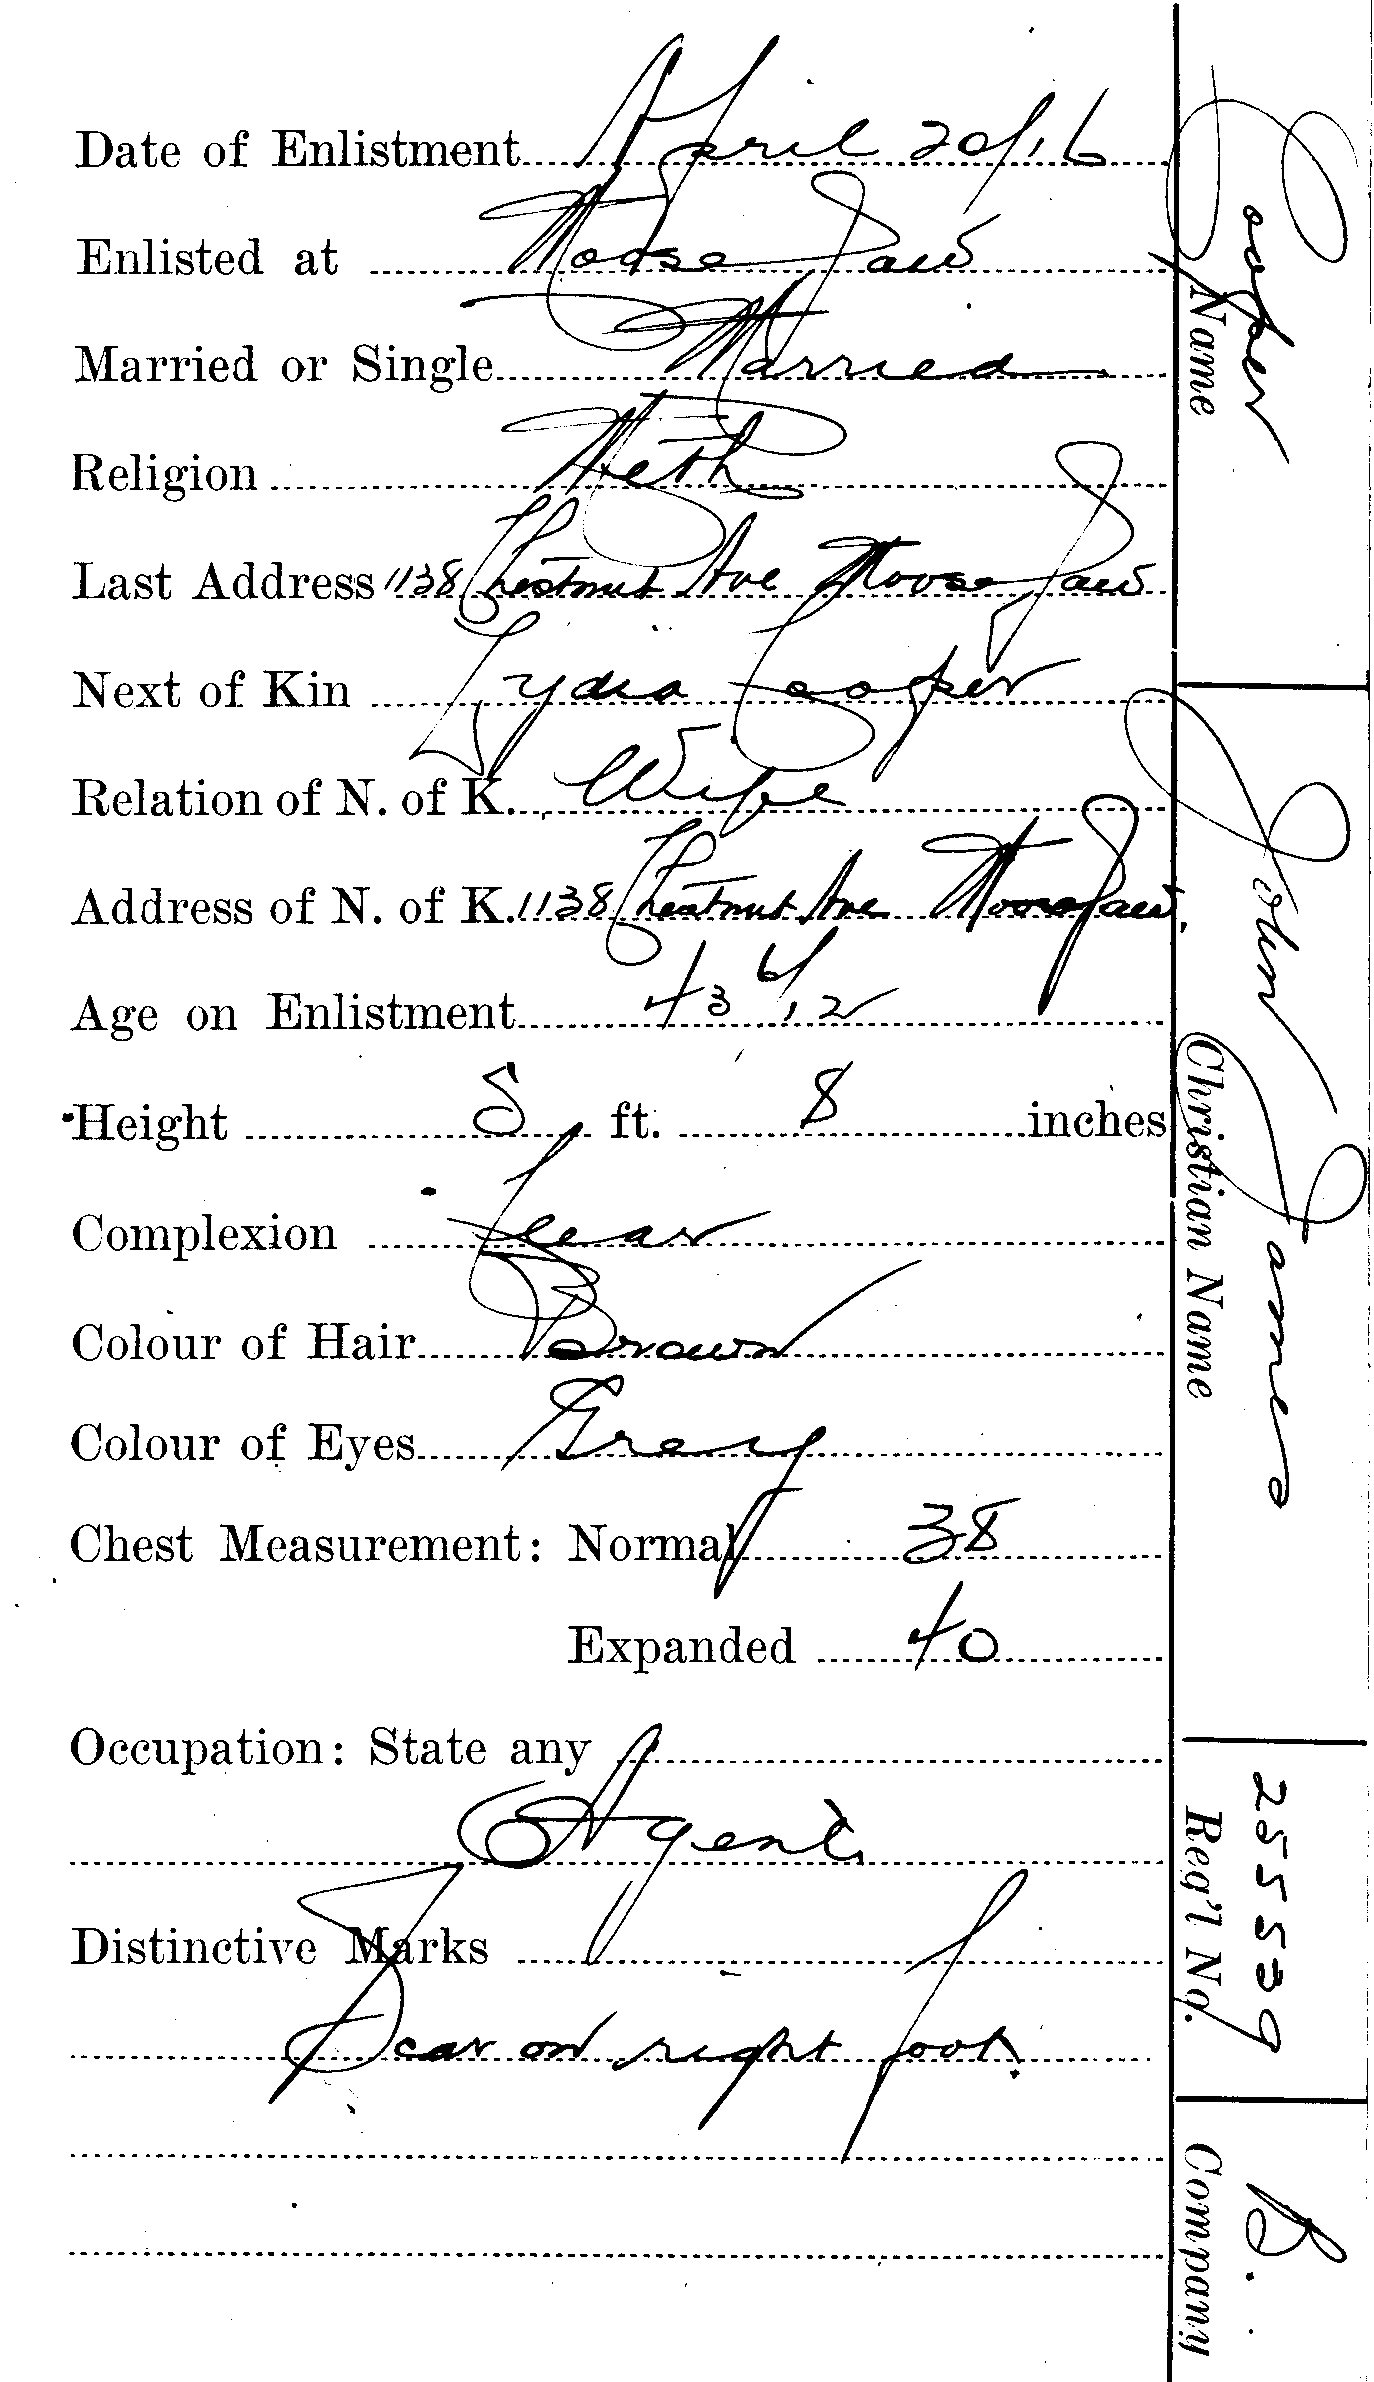 Date of Enlistment April 20/16
Enlisted at Moose Jaw
Married or Single Married
Religion Meth
Last Address 1138 Chestnut Ave Moose Jaw
Next of Kin Lydia Cooper
Relation of N. of K. Wife
Address of N. of K. 1138 Chestnut Ave Moose Jaw.
Age on Enlistment 43 6/12
Height 5 ft. 8 inches
Complexion
Colour of Hair Brown
Colour of Eyes Grey
Chest Measurement: Normal 38
Expanded 40
Occupation: State any
Agent
Distinctive Marks
Scar on right foot.
Cooper
Name
John James
Christian Name
255539
Reg'l No.
B.
Company